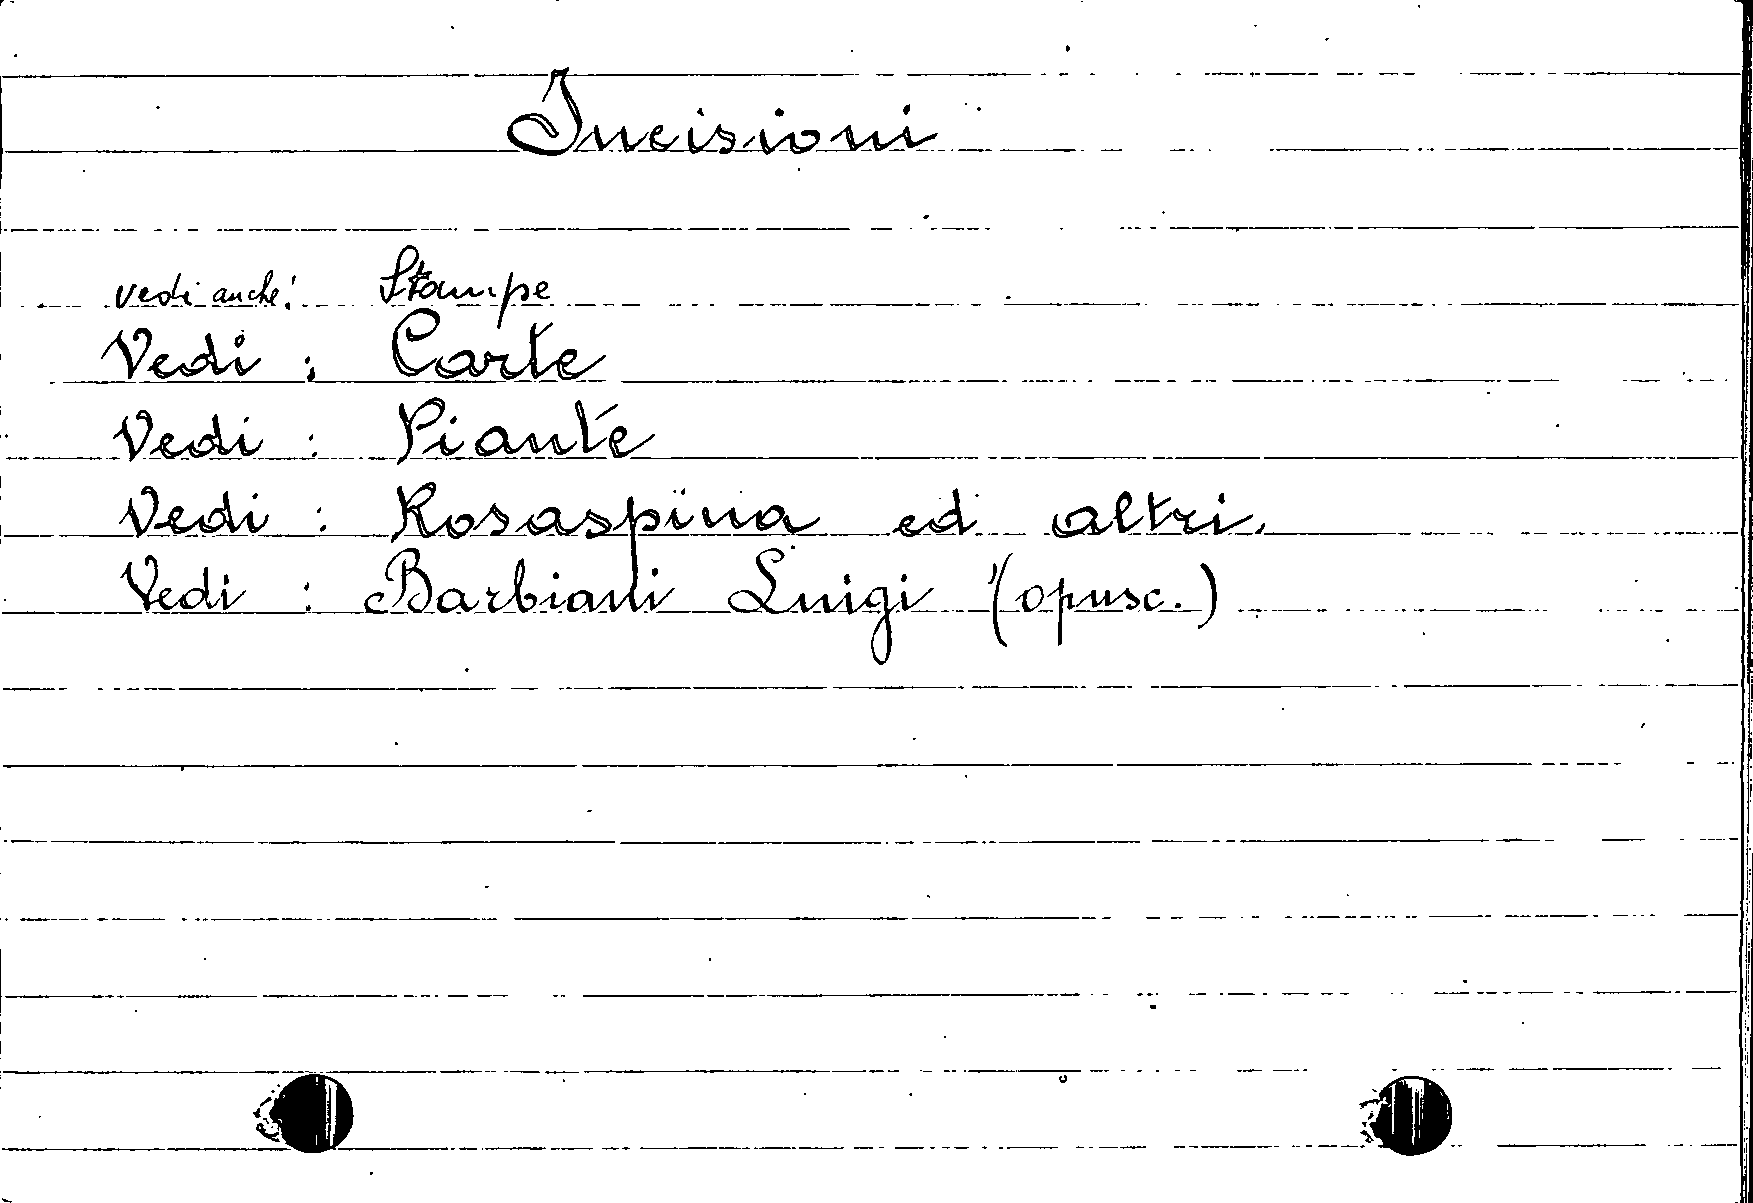 Incisioni
vedi anche: Stampe
Vedi : Carte
Vedi : Piante
Vedi : Rosaspina ed altri.
Vedi : Barbiani Luigi (opusc.)